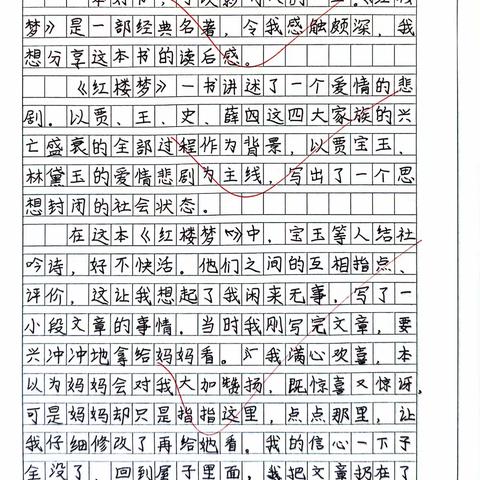 梦》是一部经典名著，令我感触颇深，我
想分享这本书的读后感。
《红楼梦》一书讲述了一个爱情的悲
剧。以贾、王、史、薛四这四大家族的兴
亡盛衰的全部过程作为背景，以贾宝玉、
林黛玉的爱情悲剧为主线，写出了一个思
想封闭的社会状态。
在这本《红楼梦》中，宝玉等人结社
吟诗，好不快活。他们之间的互相指点、
评价，这让我想起了我闲来无事，写了一
小段文章的事情。当时我刚写完文章，要
兴冲冲地拿给妈妈看。我满心欢喜，本
以为妈妈会对我大加赞扬，既惊喜又惊讶，
可是妈妈却只是指指这里，点点那里，让
我仔细修改了再给她看。我的信心一下子
全没了，回到屋子里面，我把文章扔在了